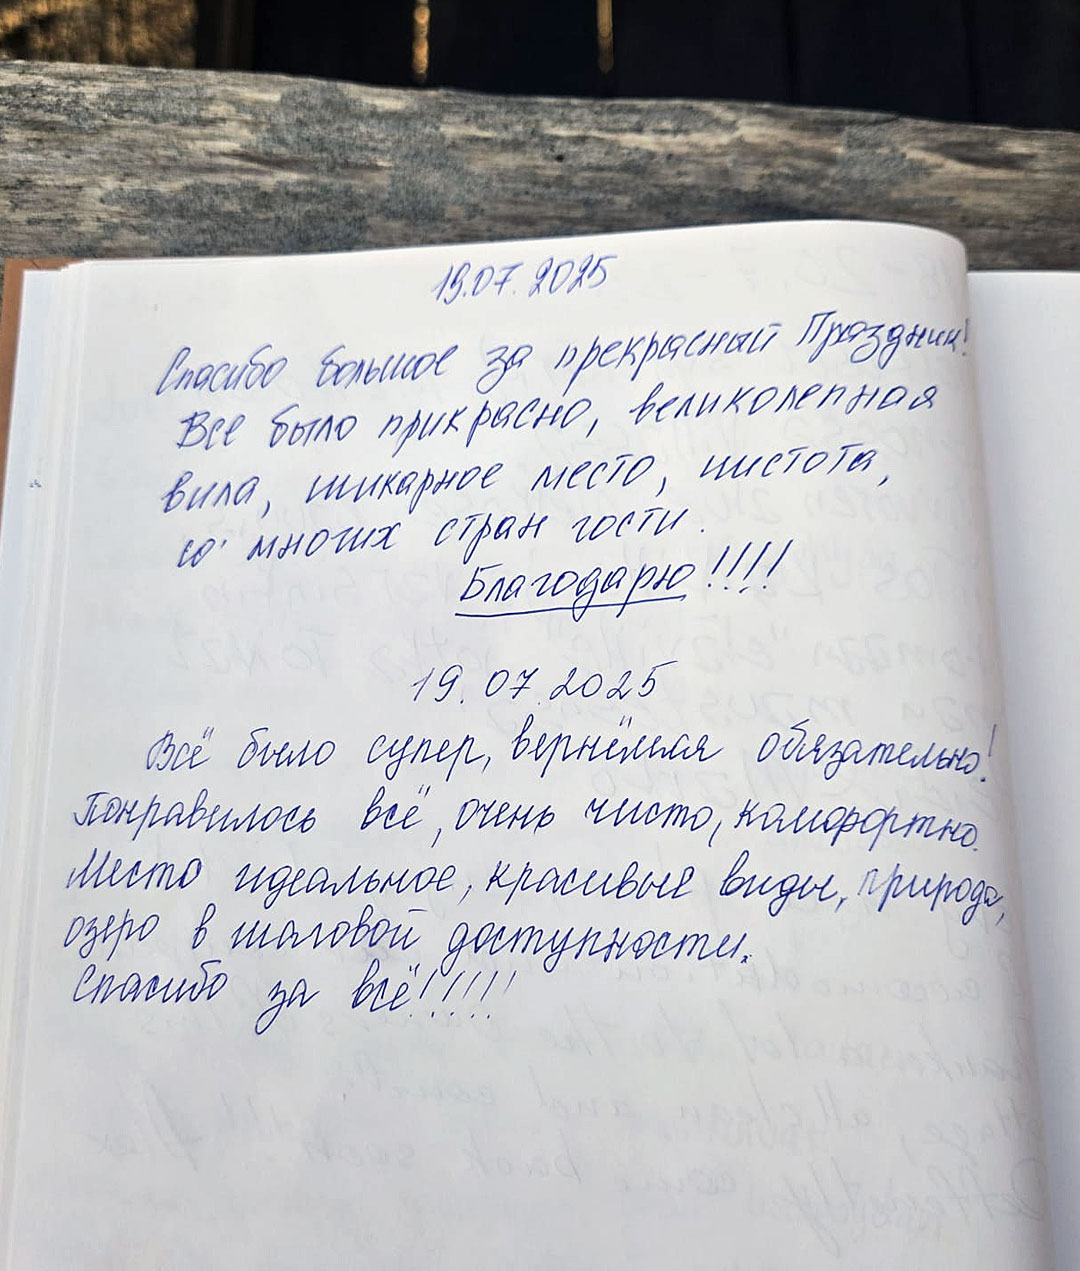 19.07.2025
Спасибо большое за прекрасный Праздник!
Все было прикрасно, великолепная
вила, шикарное место, чистота,
со многих стран гости.
Благодарю!!!!
19.07.2025
Всё было супер, вернёмся обязательно!
Понравилось всё, очень чисто, комфортно.
Место идеальное, красивые виды, природа,
озеро в шаговой доступности.
Спасибо за всё!!!!!